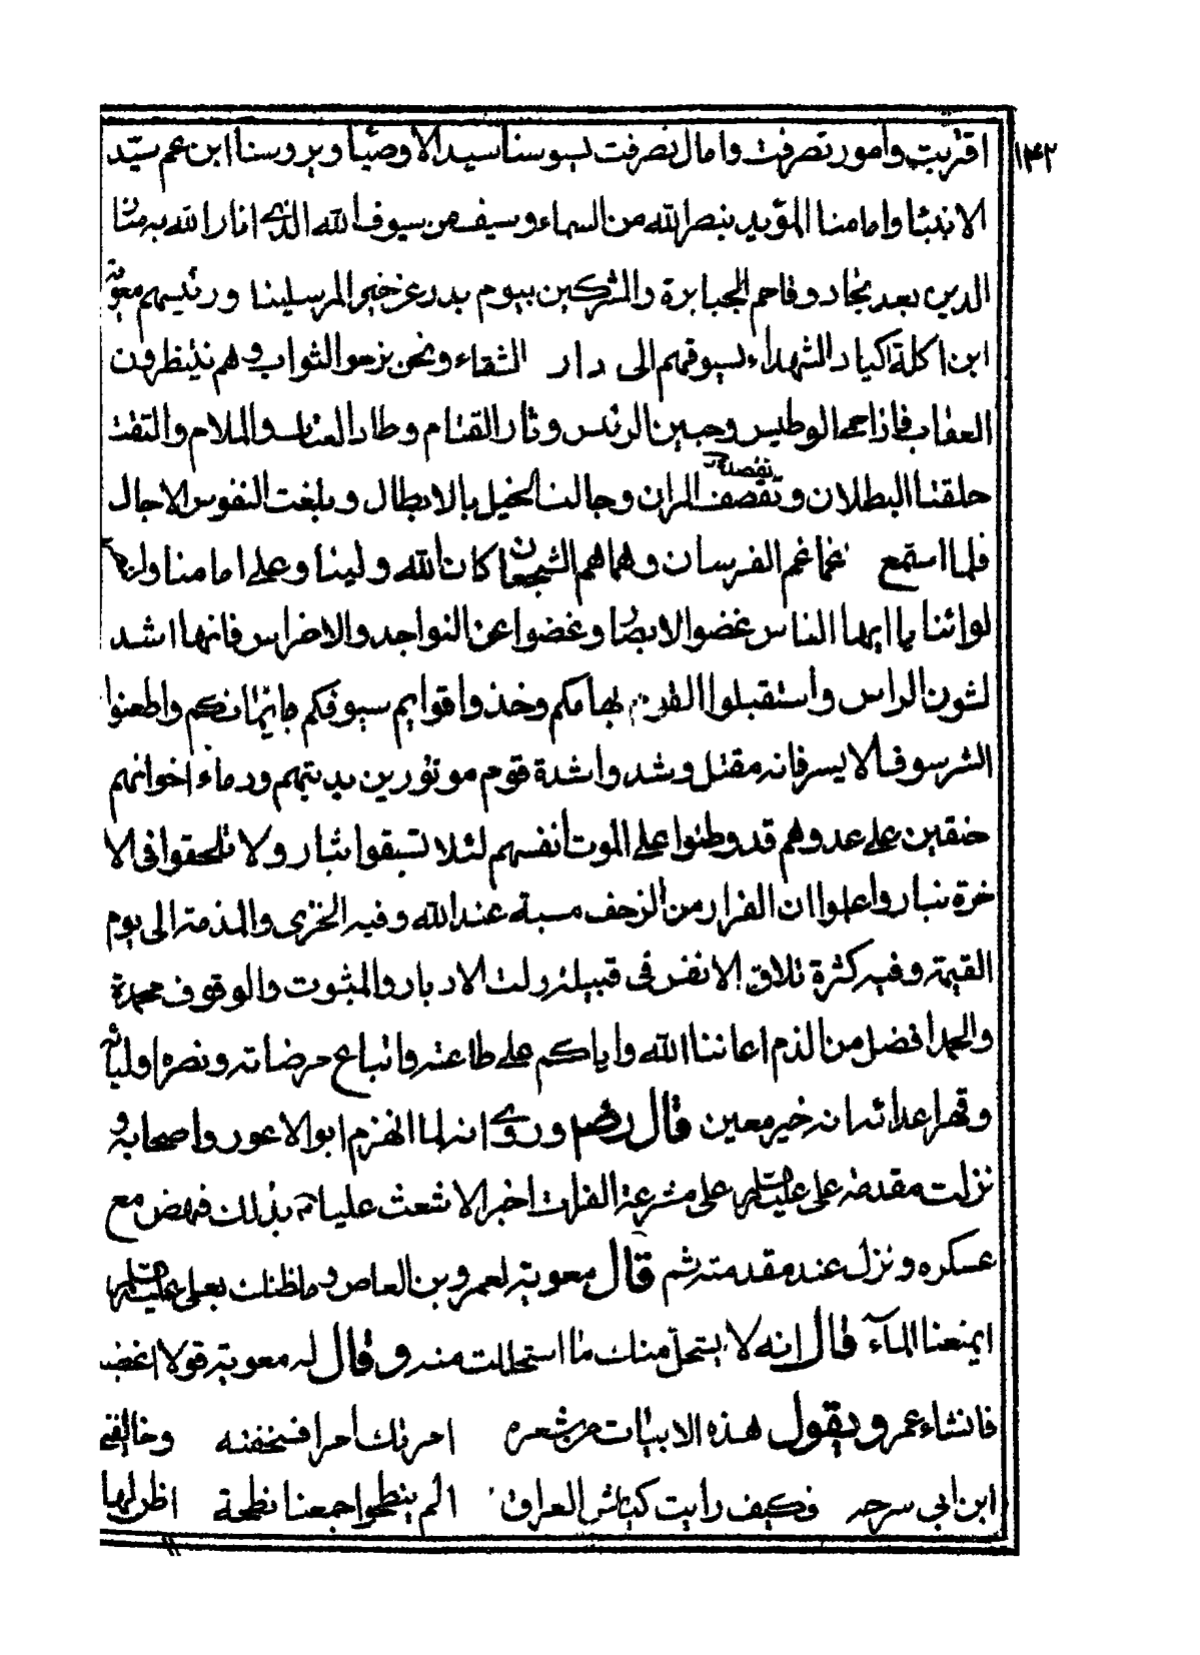 ١٤٢
اقتربت وامور تصرفت وامال نصرفت يسوسنا سيد الاوصيا ويروسنا ابن عم سيّد
الانبيا وامامنا المؤيد بنصر الله من السماء وسيف من سيوف الله الذي انار الله به منار
الدين بعد نجار وقاحم الجبابرة والمشركين بيوم بدر عن خير المرسلينا ورئيسهم معوية
ابن اكلة اكباد الشهداء يسوقهم الى دار الشقاء ونحن نرجو الثواب وهم ينتظرون
العقاب فاذا حمى الوطيس وجبن الرئيس وثار القتام وطار العتاب والملام والتقت
حلقتا البطلان وتقصفت المران وجالت الخيل بالابطال وبلغت النفوس الاجال
فلما استمع غماغم الفرسان وهماهم الشجعان كان الله ولينا وعلى امامنا
لوائنا يا ايها الناس غضوا الابصار وعضوا عن النواجد والاضراس فانها اشد
لشون الراس واستقبلوا القوم بهامكم وخذوا قوايم سيوفكم بايمانكم واطعنوا
الشرسوف الايسر فانه مقتل وشدوا شدة قوم موتورين بديتهم ودماء اخوانهم
حنقين على عدوهم قد وطنوا على الموت انفسهم لئلا تسبقوا بثار ولا تلحقوا فى الا
خرة بنار واعلموا ان الفرار من الزحف مسبة عند الله وفيه الخزى والمذمة الى يوم
القيمة وفيه كثرة تلاق الانفر فى قبيلة ولت الادبار والمثبوت والوقوف محمدة
والحمد افضل من الذم اعاننا الله واياكم على طاعته واتباع مرضاته ونصره اوليائه
وقهر اعدائه انه خير معين قال نصر وروى انه لما انهزم ابوالاعور واصحابه و
نزلت مقدمة على عليه السلم على مشرعة الفرات اخبر الاشعث عليا بذلك فنهض مع
عسكره ونزل عند مقدمته ثم قال معوية لعمرو بن العاص وما ظنك بعلى عليه السلم
ايمنعنا المآء قال انه لا يستحل منك ما استحللت منه وقال له معوية قولا اغضب
فانشاء عمرو ويقول هذه الابيات من شعره امرتك امرا فسخفته وخالفنى
ابن ابى سرحه فكيف رايت كباش العراق الم ينطحوا جمعنا نطحة اظن لها